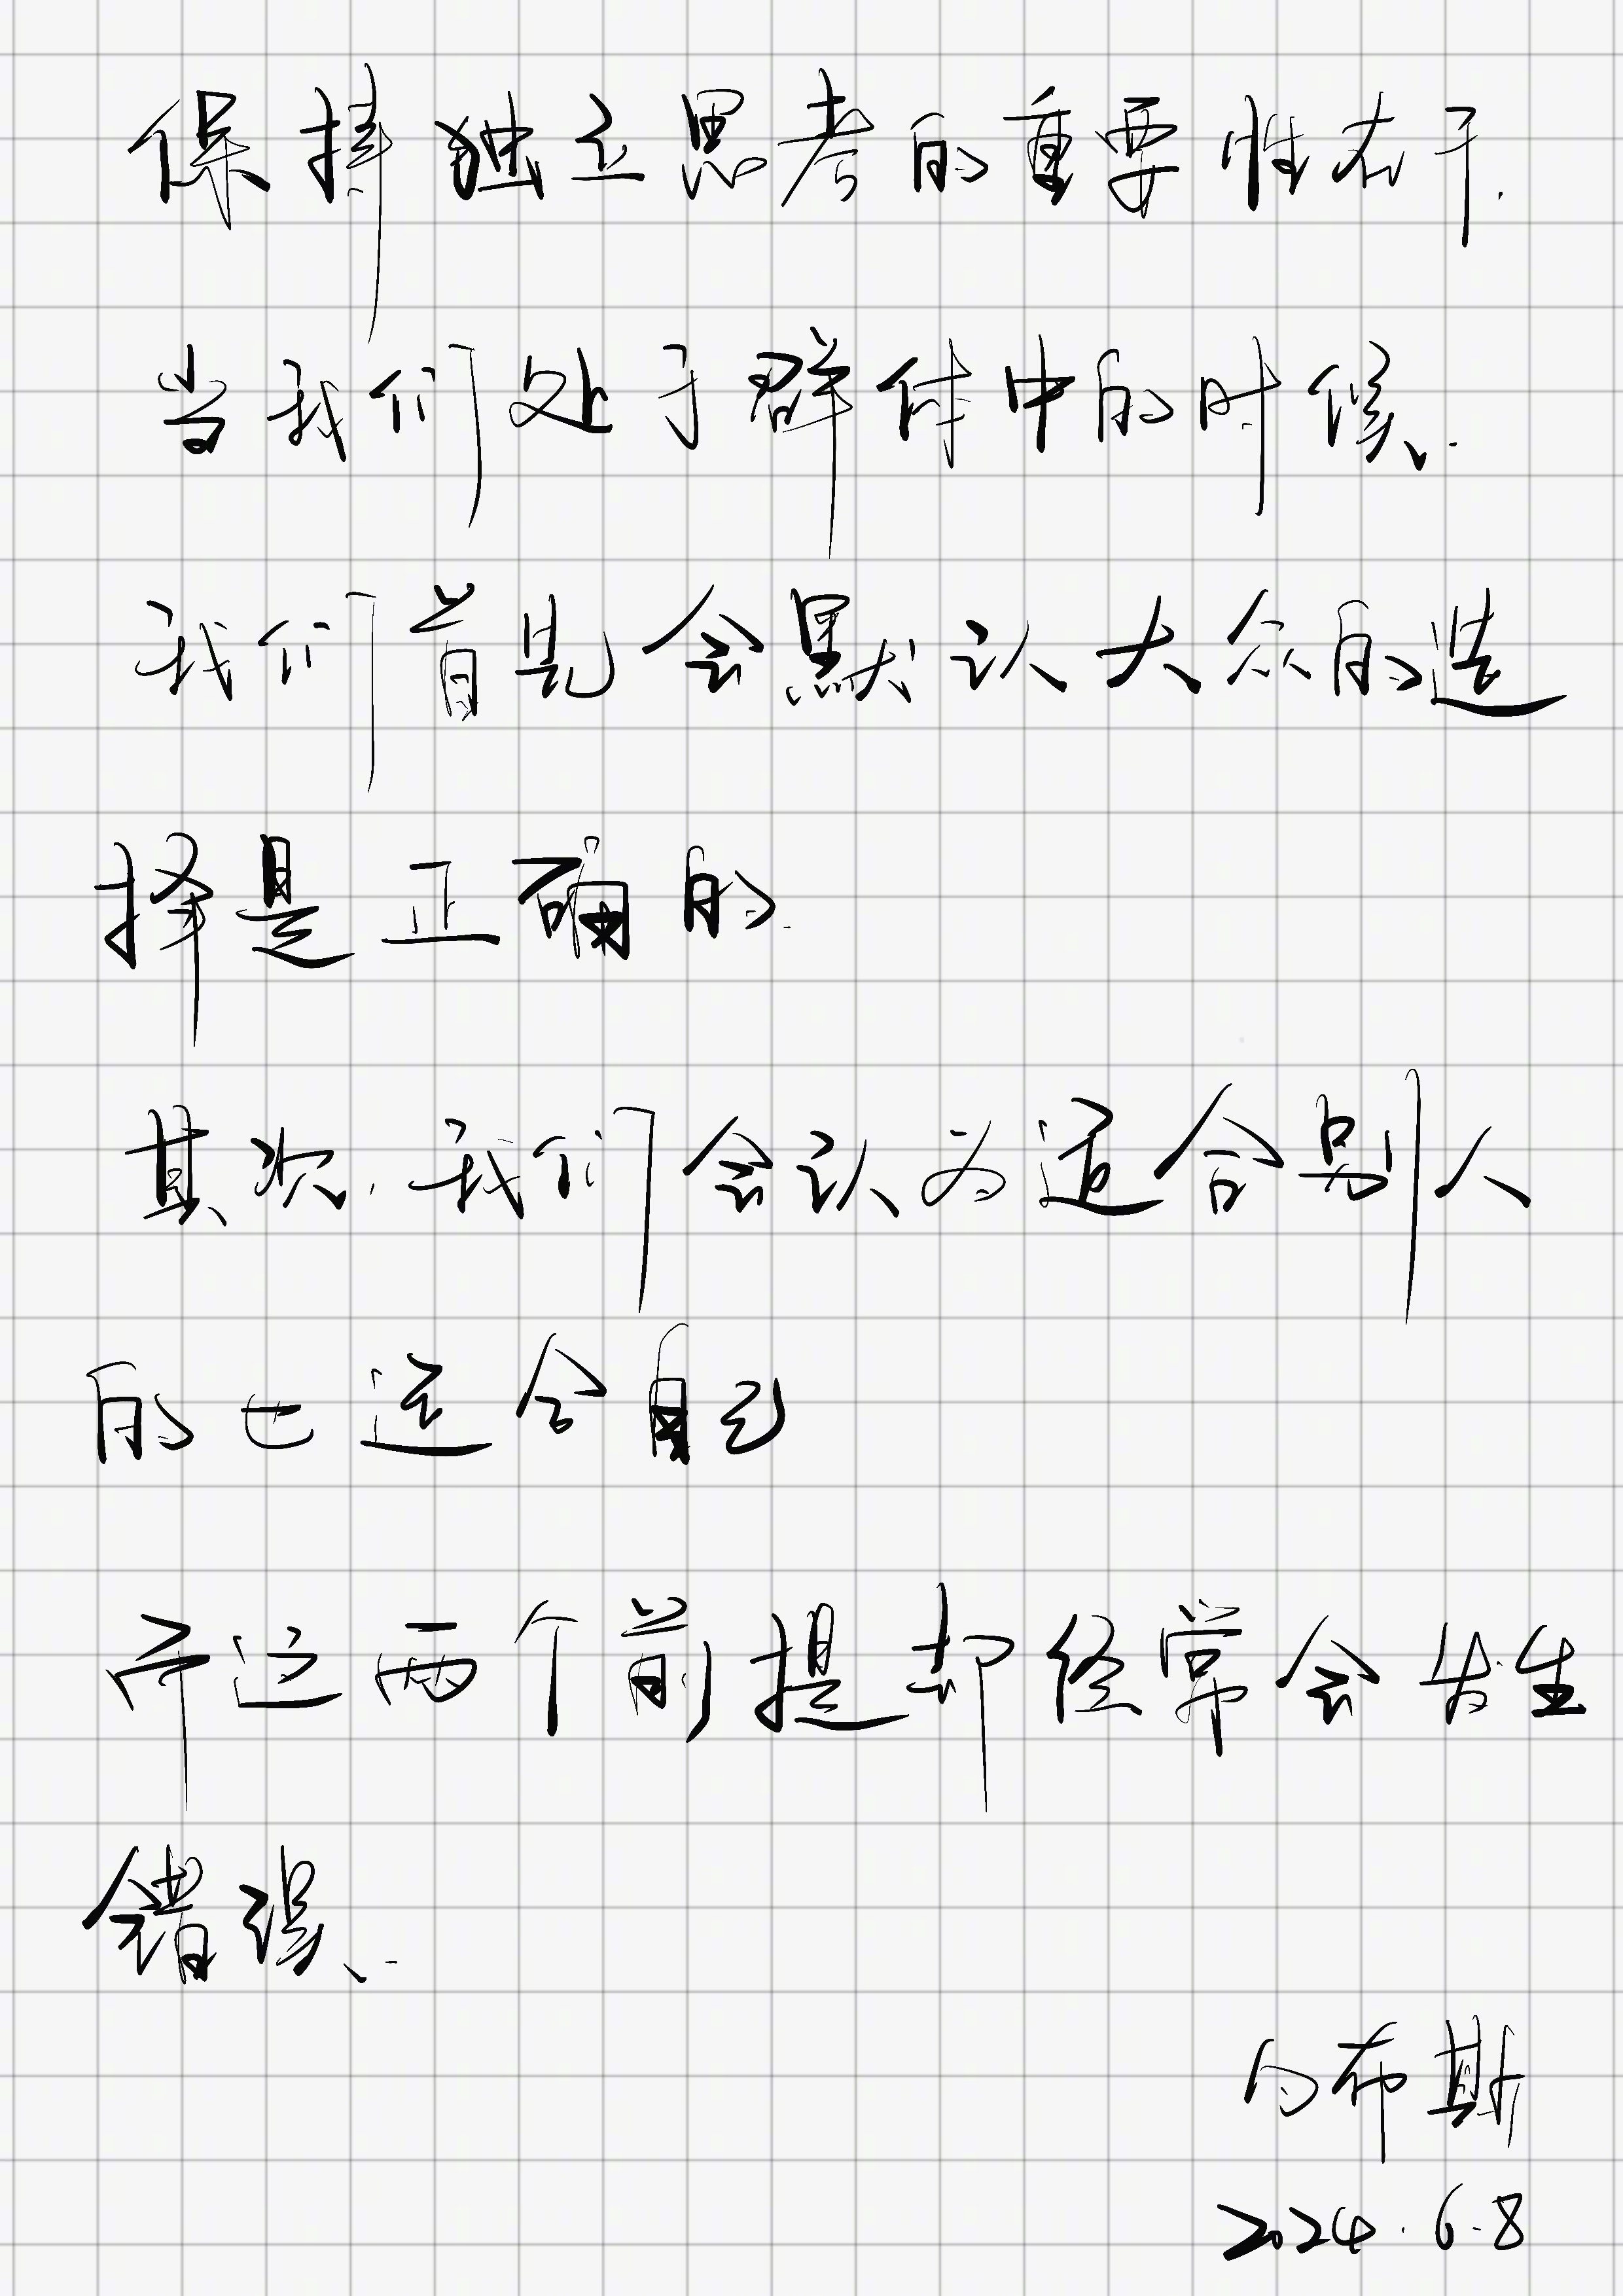 保持独立思考的重要性在于.
当我们处于群体中的时候、.
我们首先会默认大众的选
择是正确的.
其次.我们会认为适合别人
的也适合自己
而这两个前提却经常会发生
错误、.
布斯
2024.6.8